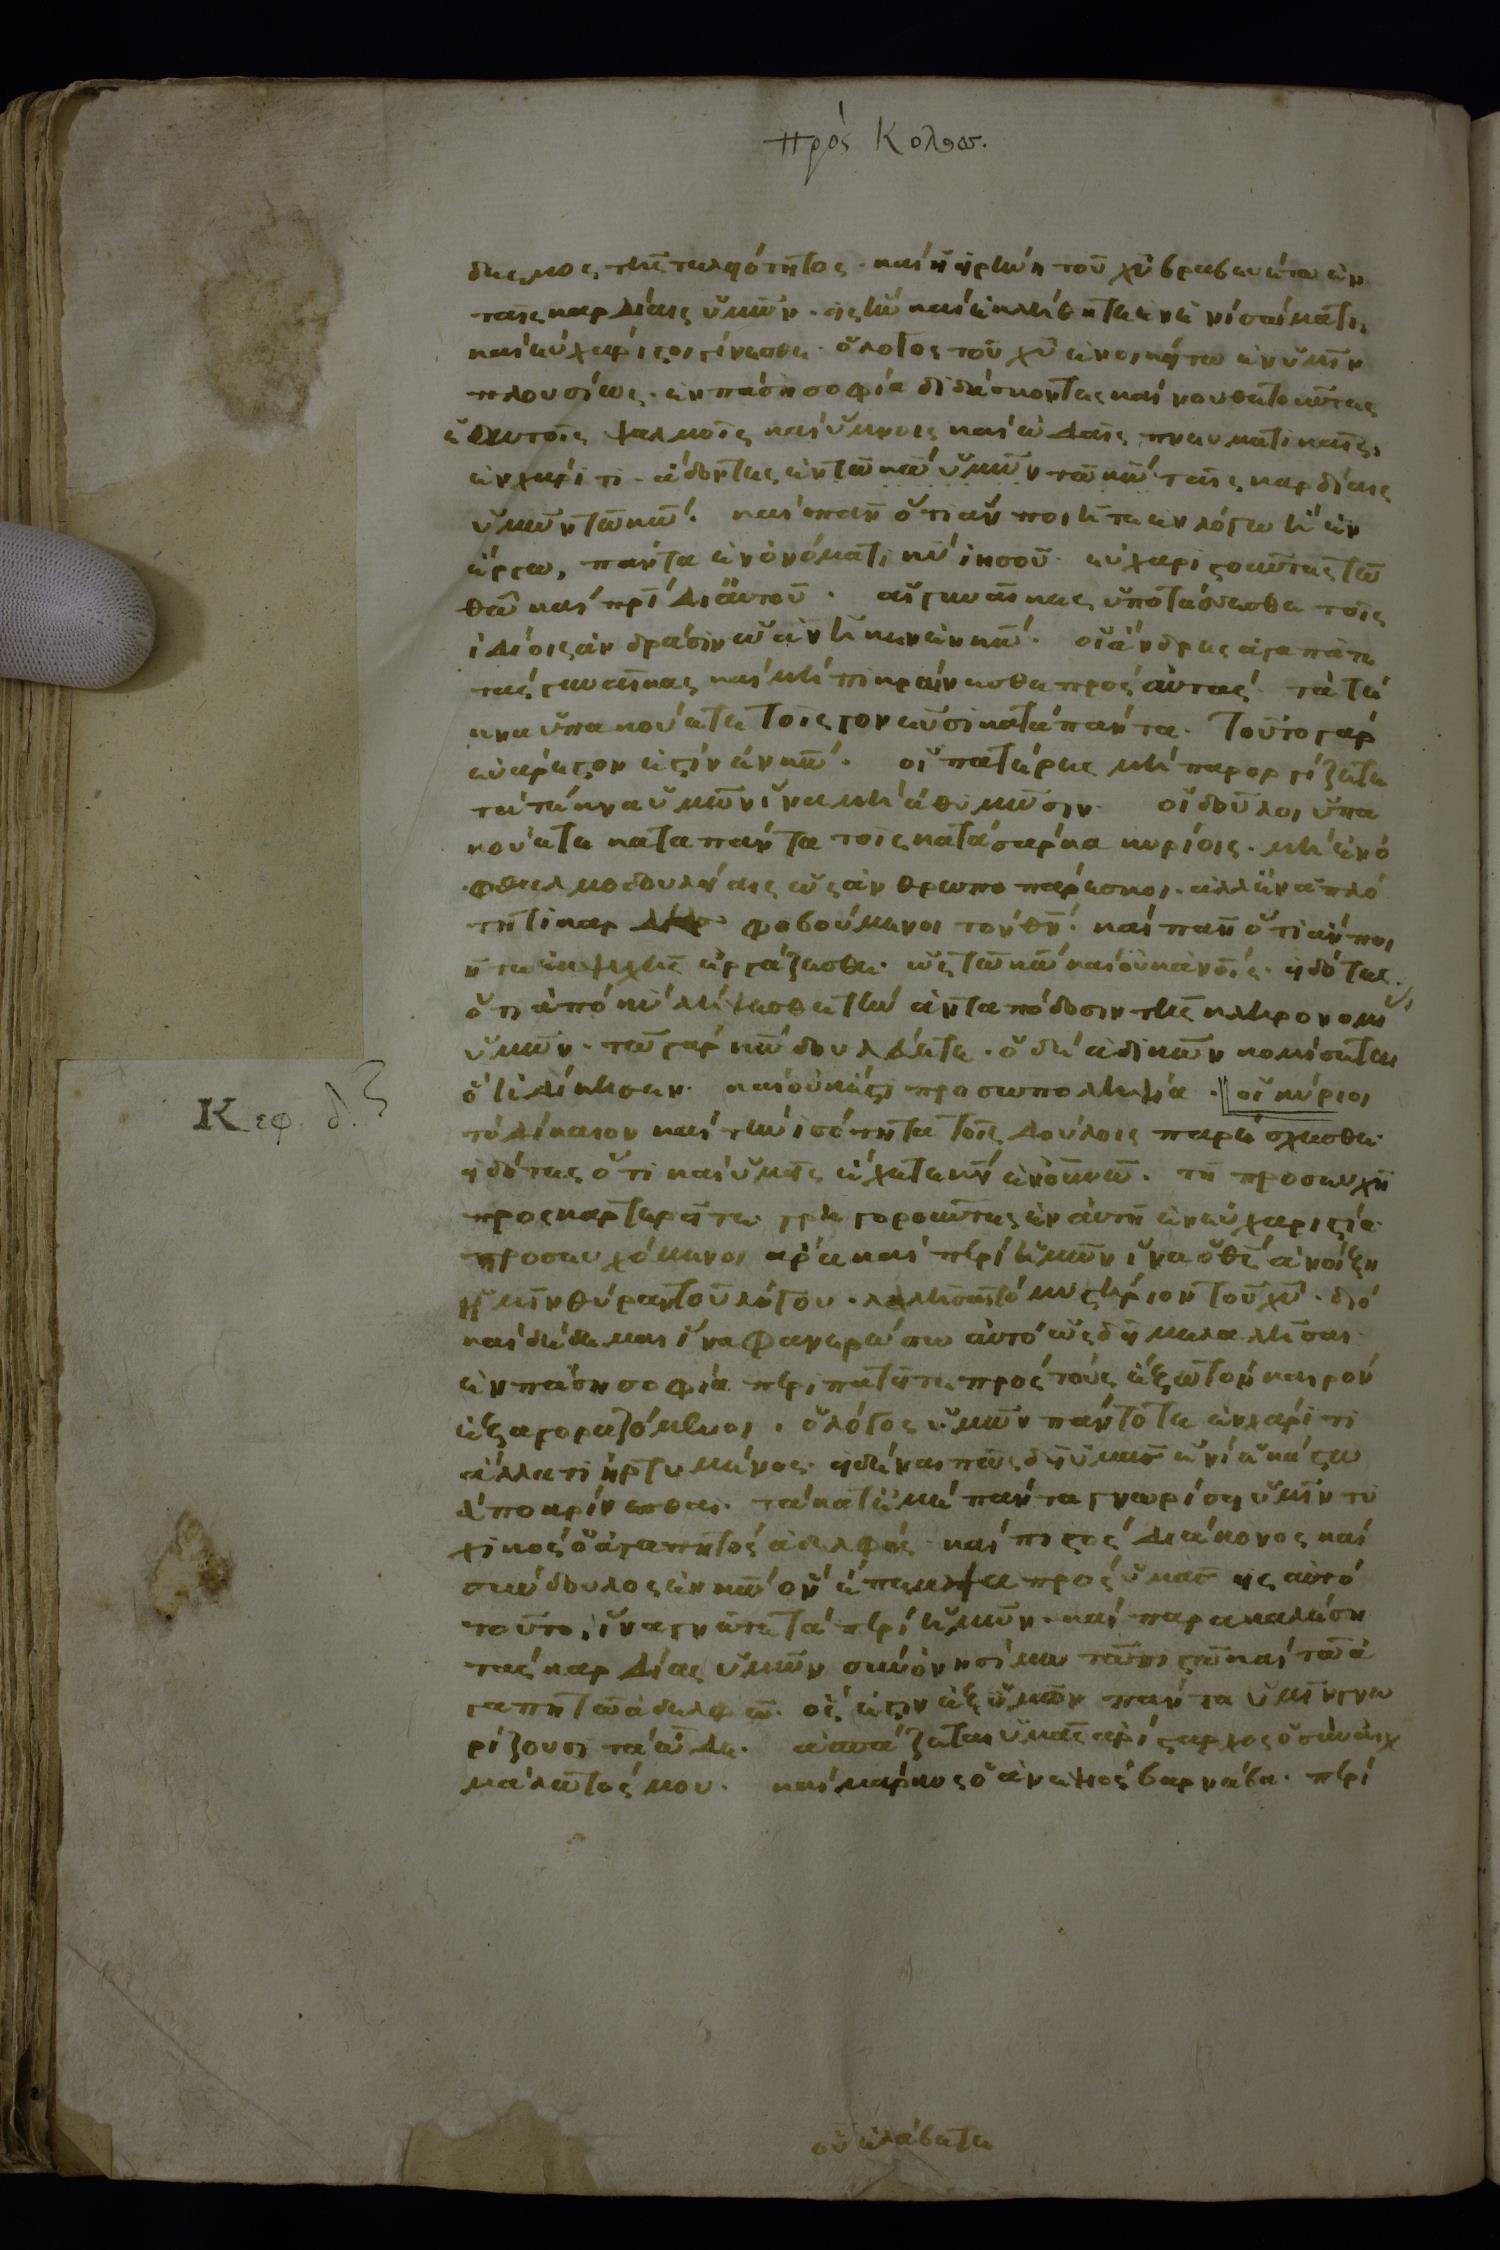 πρὸς Κολοσ.
δεσμος τῆς τελειότητος· καὶ ἡ εἰρήνη τοῦ χῦ βραβευέτω ἐν
ταῖς καρδίαις ὑμῶν· εἰς ἣν καὶ ἐκλήθητε ἐν ἑνὶ σώματι,
καὶ εὐχάριστοι γίνεσθε· ὁ λόγος τοῦ χῦ ἐνοικείτω ἐν ὑμῖν
πλουσίως· ἐν πάσῃ σοφία διδάσκοντες καὶ νουθετοῦντες
ἑαυτοῖς ψαλμοῖς καὶ ὕμνοις καὶ ὠδαῖς πνευματικαῖς,
ἐν χάριτι· ἄδοντες ἐν ταῖς καρδίαις
ὑμῶν τῶ κῶ. καὶ πᾶν ὅ τι ἂν ποιῆτε ἐν λόγω ἢ ἐν
ἔργω, πάντα ἐν ὀνόματι κῦ ἰησοῦ· εὐχαριστοῦντες τῶ
θῶ καὶ πρὶ δι αὐτοῦ. αἱ γυναῖκες ὑποτάσσεσθε τοῖς
ἰδίοις ἀνδράσιν ὡς ἀνῆκεν ἐν κῶ. οἱ ἄνδρες ἀγαπᾶτε
τὰς γυναῖκας καὶ μὴ πικραίνεσθε πρὸς αὐτάς· τὰ τέ
κνα ὑπακούετε τοῖς γονεῦσι κατὰ πάντα. τοῦτο γάρ
εὐάρεστον ἐστὶν ἐν κῶ. οἱ πατέρες μὴ παροργίζετε
τὰ τέκνα ὑμῶν ἵνα μὴ ἀθυμῶσιν· οἱ δοῦλοι ὑπα
κούετε κατα πάντα τοῖς κατὰ σάρκα κυρίοις· μὴ ἐν ὀ
φθαλμοδουλείαις ὡς ἀνθρωπάρεσκοι· ἀλλ ἐν ἁπλό
τητι καρδίας φοβούμενοι τὸν θν· καὶ πᾶν ὅ τι ἂν ποι
ῆτε ἐκ ψυχῆς ἐργάζεσθε· ὡς τῶ κῶ καὶ οὐκ ἀνοις· εἰδότες
ὅτι ἀπὸ κῦ λήψεσθε τὴν ἀνταπόδοσιν τῆς κληρονομί
ὑμῶν· τῶ γὰρ κῶ δουλεύετε· ὁ δὲ ἀδικῶν κομιεῖται
ὃ ἠδίκησεν· καὶ οὐκ ἔστι προσωποληψία· οἱ κύριοι
τὸ δίκαιον καὶ τὴν ἰσότητα τοῖς δούλοις παρέχεσθε
εἰδότες ὅτι καὶ ὑμεῖς ἔχετε κν ἐν οὐνῶ. τῇ προσευχῆ
προσκαρτερεῖτε γρηγοροῦντες ἐν αὐτῆ ἐν εὐχαριστία·
προσευχόμενοι ἅμα καὶ περὶ ἡμῶν ἵνα ὁ θς ἀνοίξη
ἡμῖν θύραν τοῦ λόγου· λαλῆσαι τὸ μυστήριον τοῦ χῦ· διὸ
καὶ δέδεμαι ἵνα φανερώσω αὐτὸ ὡς δεῖ με λαλῆσαι
ἐν πάση σοφία περιπατεῖτε πρὸς τοὺς ἔξω τὸν καιρὸν
ἐξαγοραζόμενοι· ὁ λόγος ὑμῶν πάντοτε ἐν χάριτι
ἅλατι ἠρτυμένος· εἰδέναι πῶς δεῖ ὑμᾶς ἑνὶ ἑκάστω
ἀποκρίνεσθαι. τὰ κατ ἐμὲ πάντα γνωρίσει ὑμῖν τυ
χικὸς ὁ ἀγαπητὸς ἀδελφός καὶ πιστὸς διάκονος καὶ
σύνδουλος ἐν κῶ ὃν ἔπεμψα πρὸς ὑμᾶς εἰς αὐτὸ
τοῦτο, ἵνα γνῶτε τὰ περὶ ἡμῶν· καὶ παρακαλέση
τὰς καρδίας ὑμῶν σὺν ὀνησίμω τῶ πιστῶ καὶ τῶ ἀ
γαπητῶ ἀδελφῶ. ὅς ἐστιν ἐξ ὑμῶν πάντα ὑμῖν γνω
ρίζουσι τὰ ὧδε. ἀσπάζεται ὑμᾶς ἀρίσταρχος ὁ συναιχ
μάλωτός μου. καὶ μάρκος ὁ ἀνεψιὸς βαρνάβα· περὶ
Κεφ. δ.
οὗ ἐλάβετε